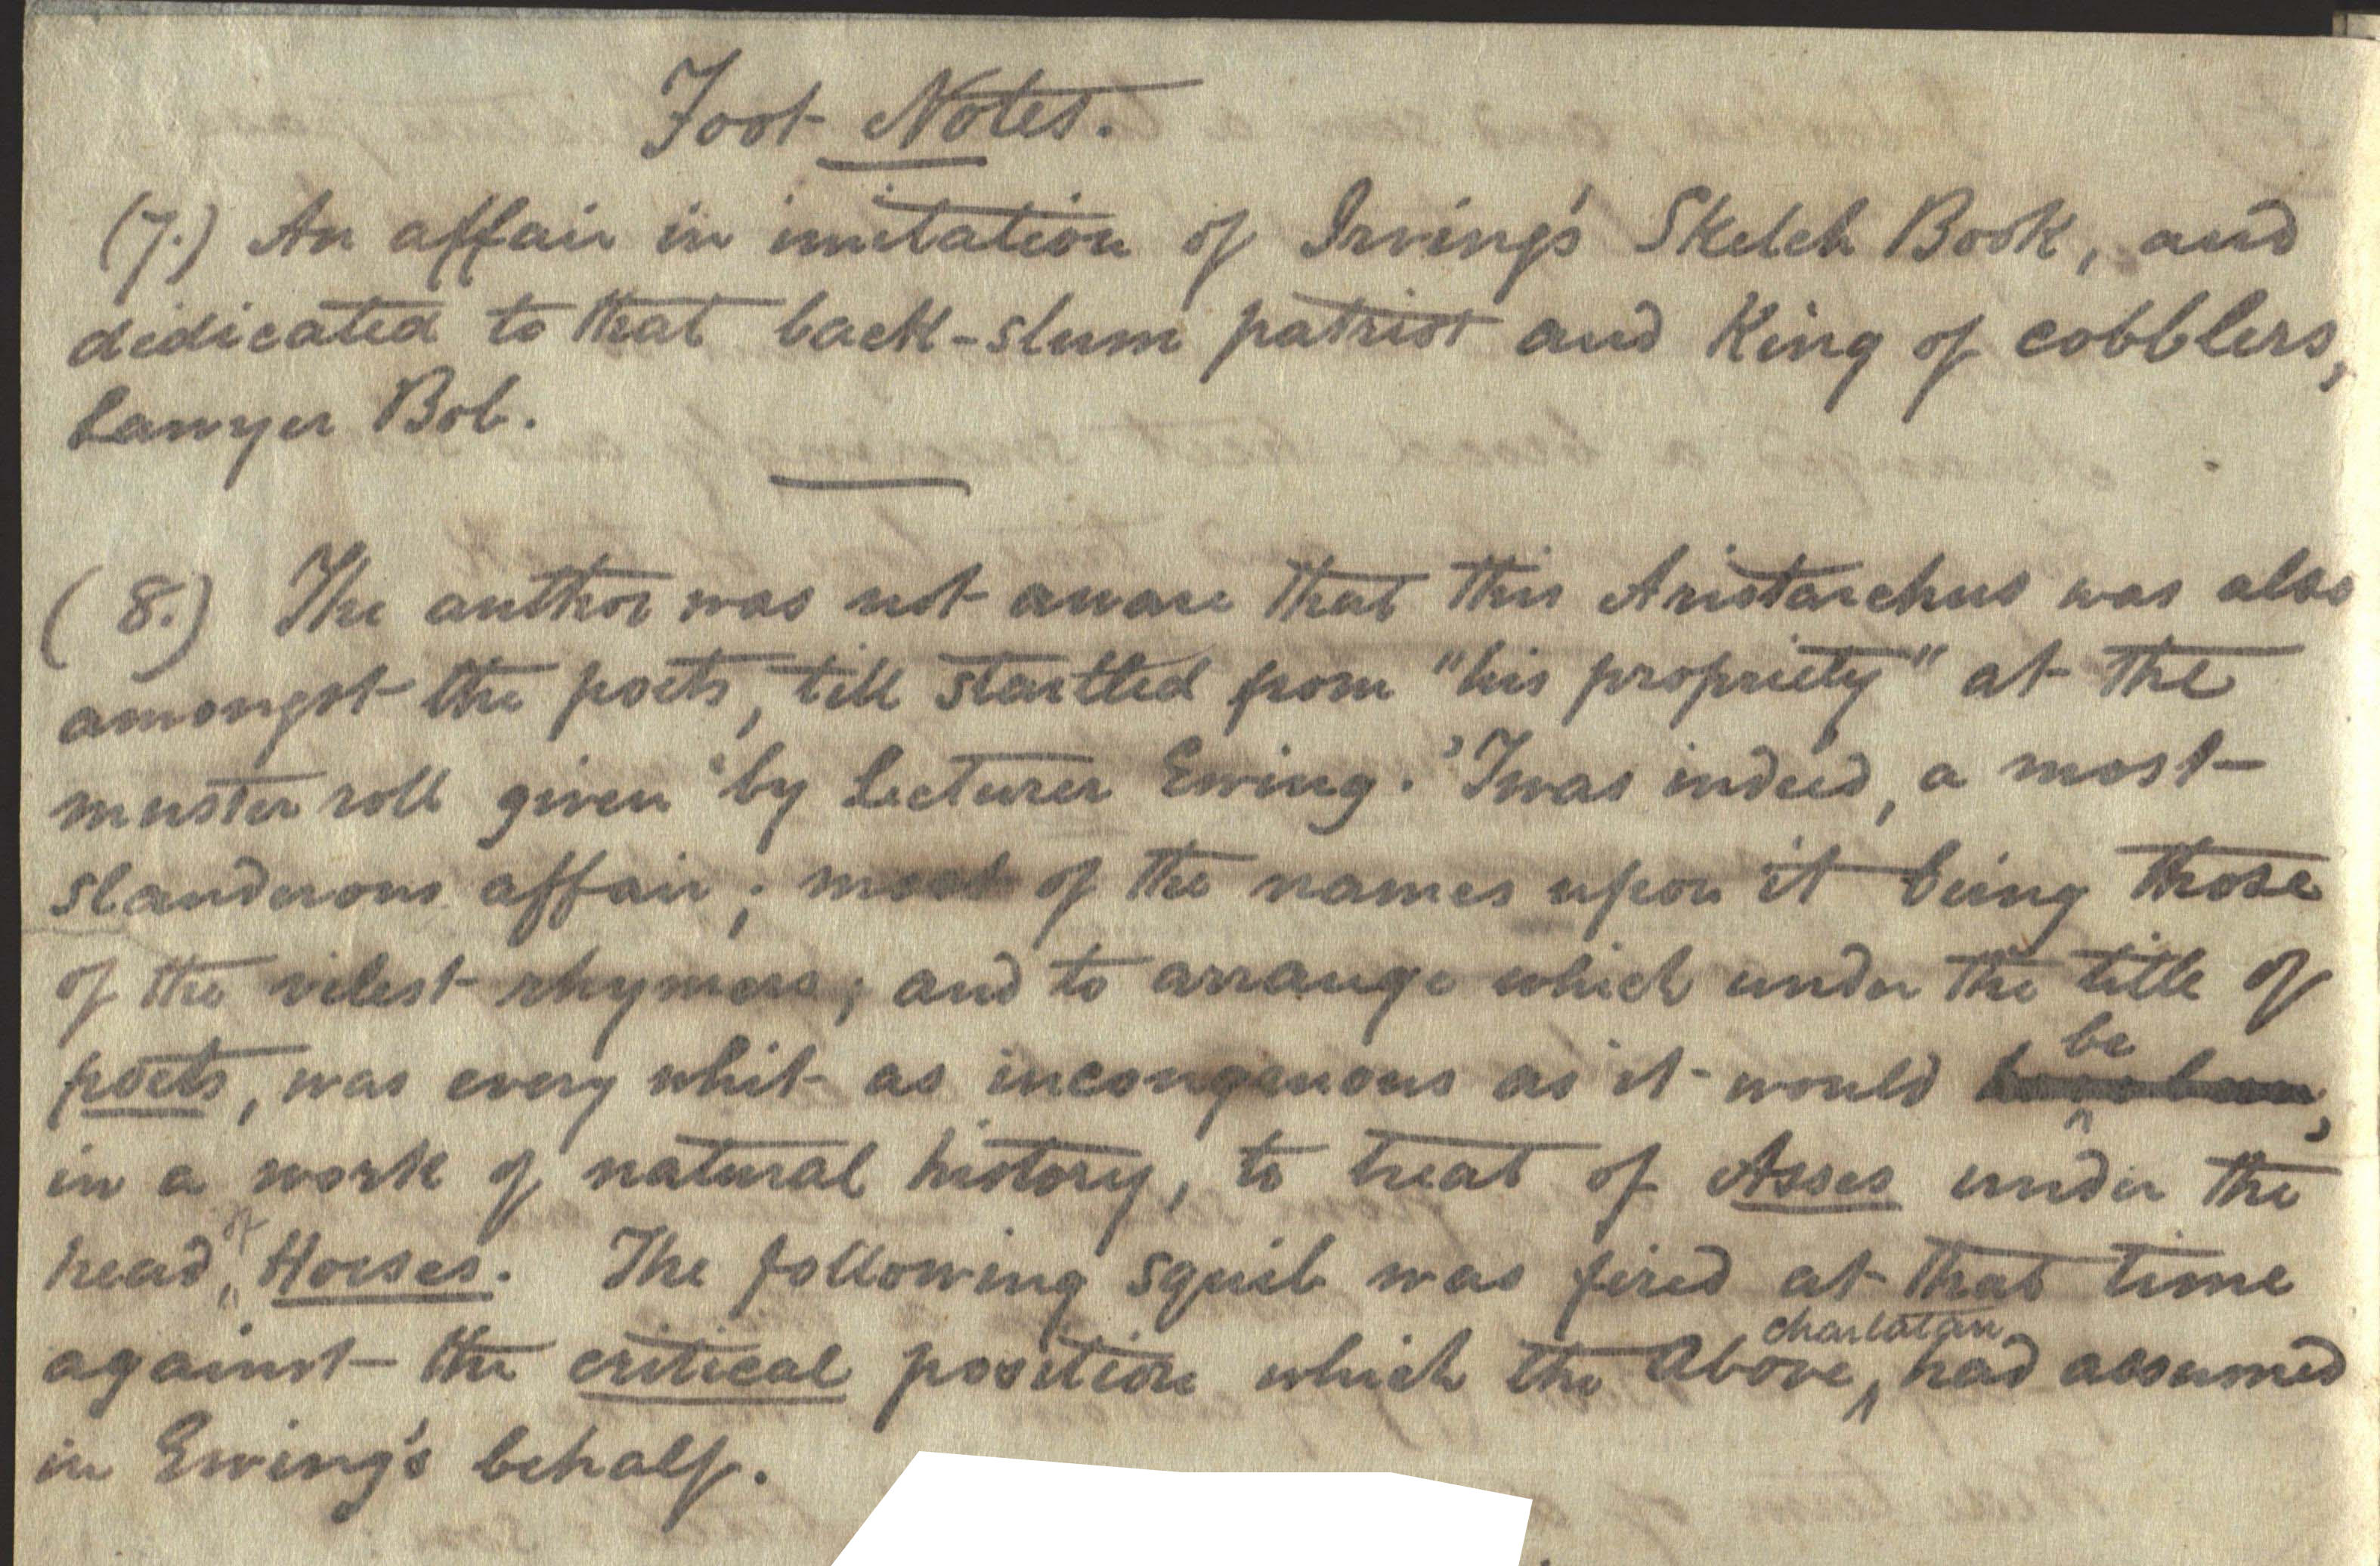 Foot Notes.
(7.) An affair in imitation of Irving's Sketch Book, and
dedicated to that back-slum patriot and King of cobblers,
Lawyer Bob.
(8.) The author was not aware that this Aristarchus was also
amongst the poets, till startled from "his propriety" at the
muster roll given by Lecturer Ewing. 'Twas indeed, a most
slanderous affair; most of the names upon it being those
of the vilest rhymers; and to arrange which under the title of
poets, was every whit as incongenuous as it would be,
in a work of natural history, to treat of Asses under the
head of Horses. The following squib was fired at that time
against the critical position which the above charlatan had assumed
in Ewing's behalf.